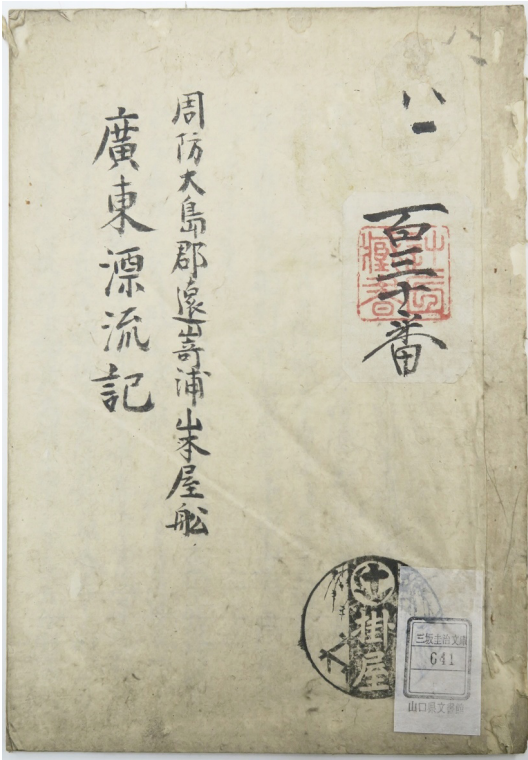 百三十番
周防大島郡遠嵜浦米屋舩
廣東漂流記
掛屋
三坂圭治文庫
641
山口県文書館